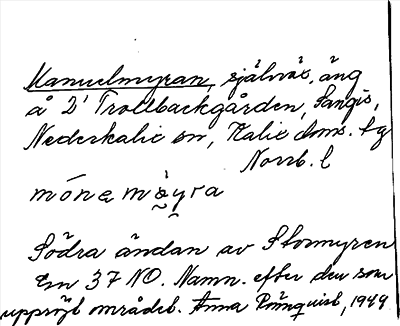 Manuelmyran, självväs. äng
å 2' Trollbackgården, Sangis,
Nederkalix sn, Kalix doms. tg
Norrb. l
mónemàyra
Södra ändan av Stormyren
Em 37 NO. Namn. efter den som
uppröjt området. Anna Rönnquist, 1949